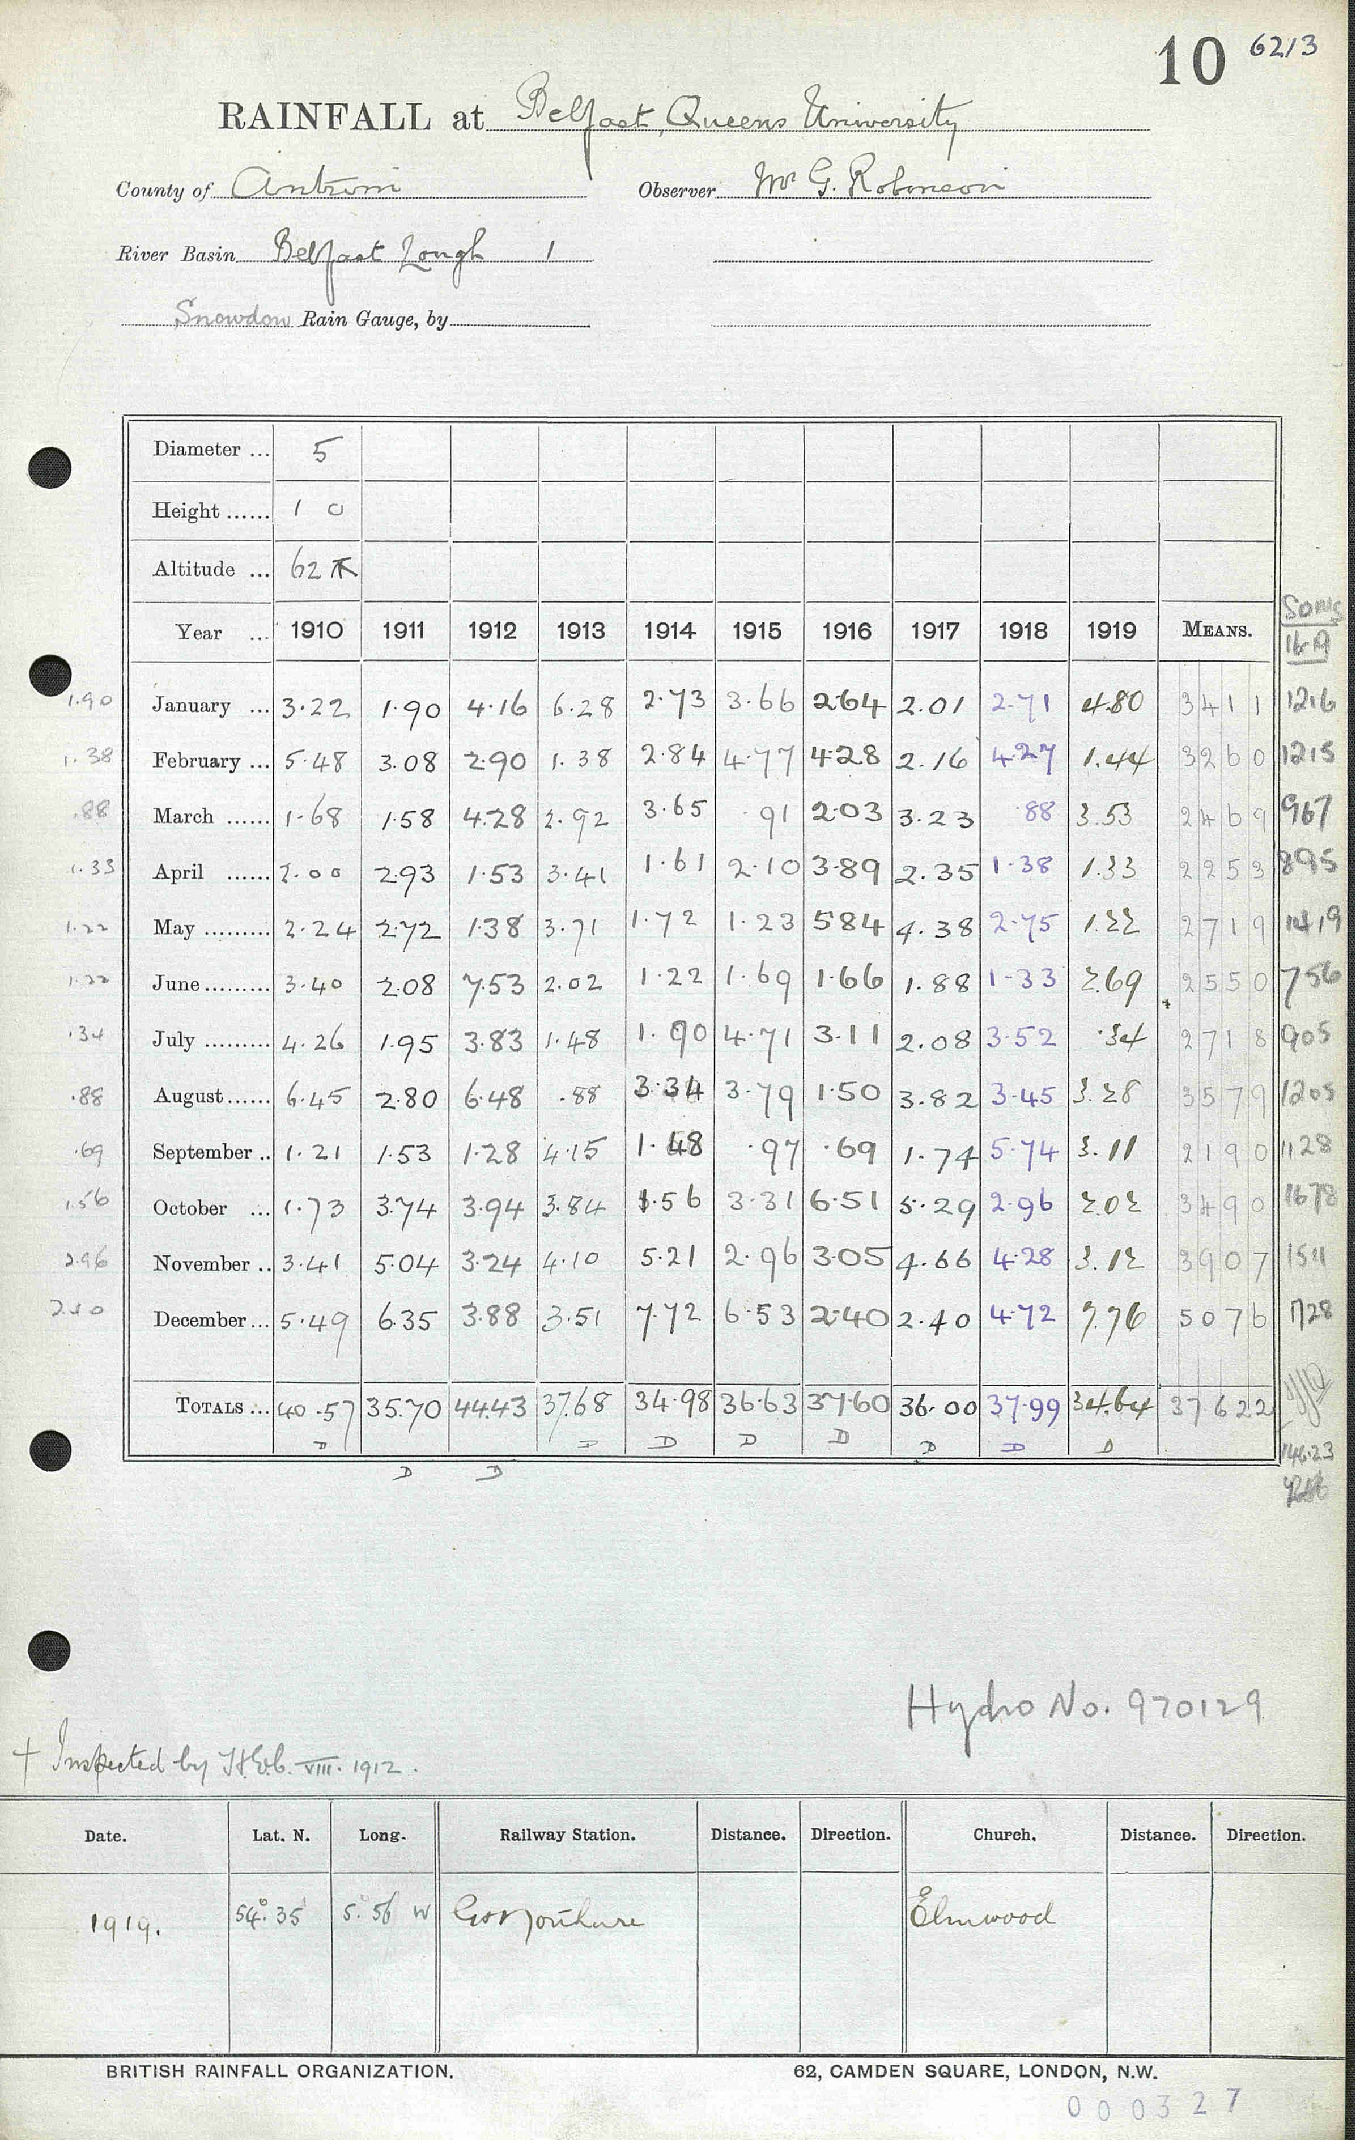 10 6213
RAINFALL at Belfast, Queens University
County of Antrim Observer Mr G. Robinson
River Basin Belfast Lough 1
Snowdon Rain Gauge, by
Diameter ... 5
Height ...... 1 0
Altitude ... 62
Year ... 1910 1911 1912 1913 1914 1915 1916 1917 1918 1919 MEANS.
1.90 January ... 3.22 1.90 4.16 6.28 2.73 3.66 2.64 2.01 2.71 4.80 3411 1216
1.38 February ... 5.48 3.08 2.90 1.38 2.84 4.77 4.28 2.16 4.27 1.44 3260 1215
.88 March ...... 1.68 1.58 4.28 2.92 3.65 .91 2.03 3.23 .88 3.53 2469 967
1.33 April ...... 2.00 2.93 1.53 3.41 1.61 2.10 3.89 2.35 1.38 1.33 2253 895
1.22 May ......... 2.24 2.72 1.38 3.71 1.72 1.23 5.84 4.38 2.75 1.22 2719 1419
1.22 June ......... 3.40 2.08 7.53 2.02 1.22 1.69 1.66 1.88 1.33 2.69 2550 756
.34 July ......... 4.26 1.95 3.83 1.48 1.90 4.71 3.11 2.08 3.52 .34 2718 905
.88 August ...... 6.45 2.80 6.48 .88 3.34 3.79 1.50 3.82 3.45 3.28 3579 1205
.69 September .. 1.21 1.53 1.28 4.15 1.48 .97 .69 1.74 5.74 3.11 2190 1128
1.56 October ... 1.73 3.74 3.94 3.84 1.56 3.31 6.51 5.29 2.96 2.02 3490 1678
2.96 November .. 3.41 5.04 3.24 4.10 5.21 2.96 3.05 4.66 4.28 3.12 3907 1511
2.40 December ... 5.49 6.35 3.88 3.51 7.72 6.53 2.40 2.40 4.72 7.76 5076 1728
TOTALS ... 40.57 35.70 44.43 37.68 34.98 36.63 37.60 36.00 37.99 34.64 37622
D D D D D D D D
D D
146.23
Hydro No. 970129
† Inspected by VIII. 1912.
Date. Lat. N. Long. Railway Station. Distance. Direction. Church. Distance. Direction.
1919. 54° 35 5° 56 W Elmwood
BRITISH RAINFALL ORGANIZATION. 62, CAMDEN SQUARE, LONDON, N.W.
000327